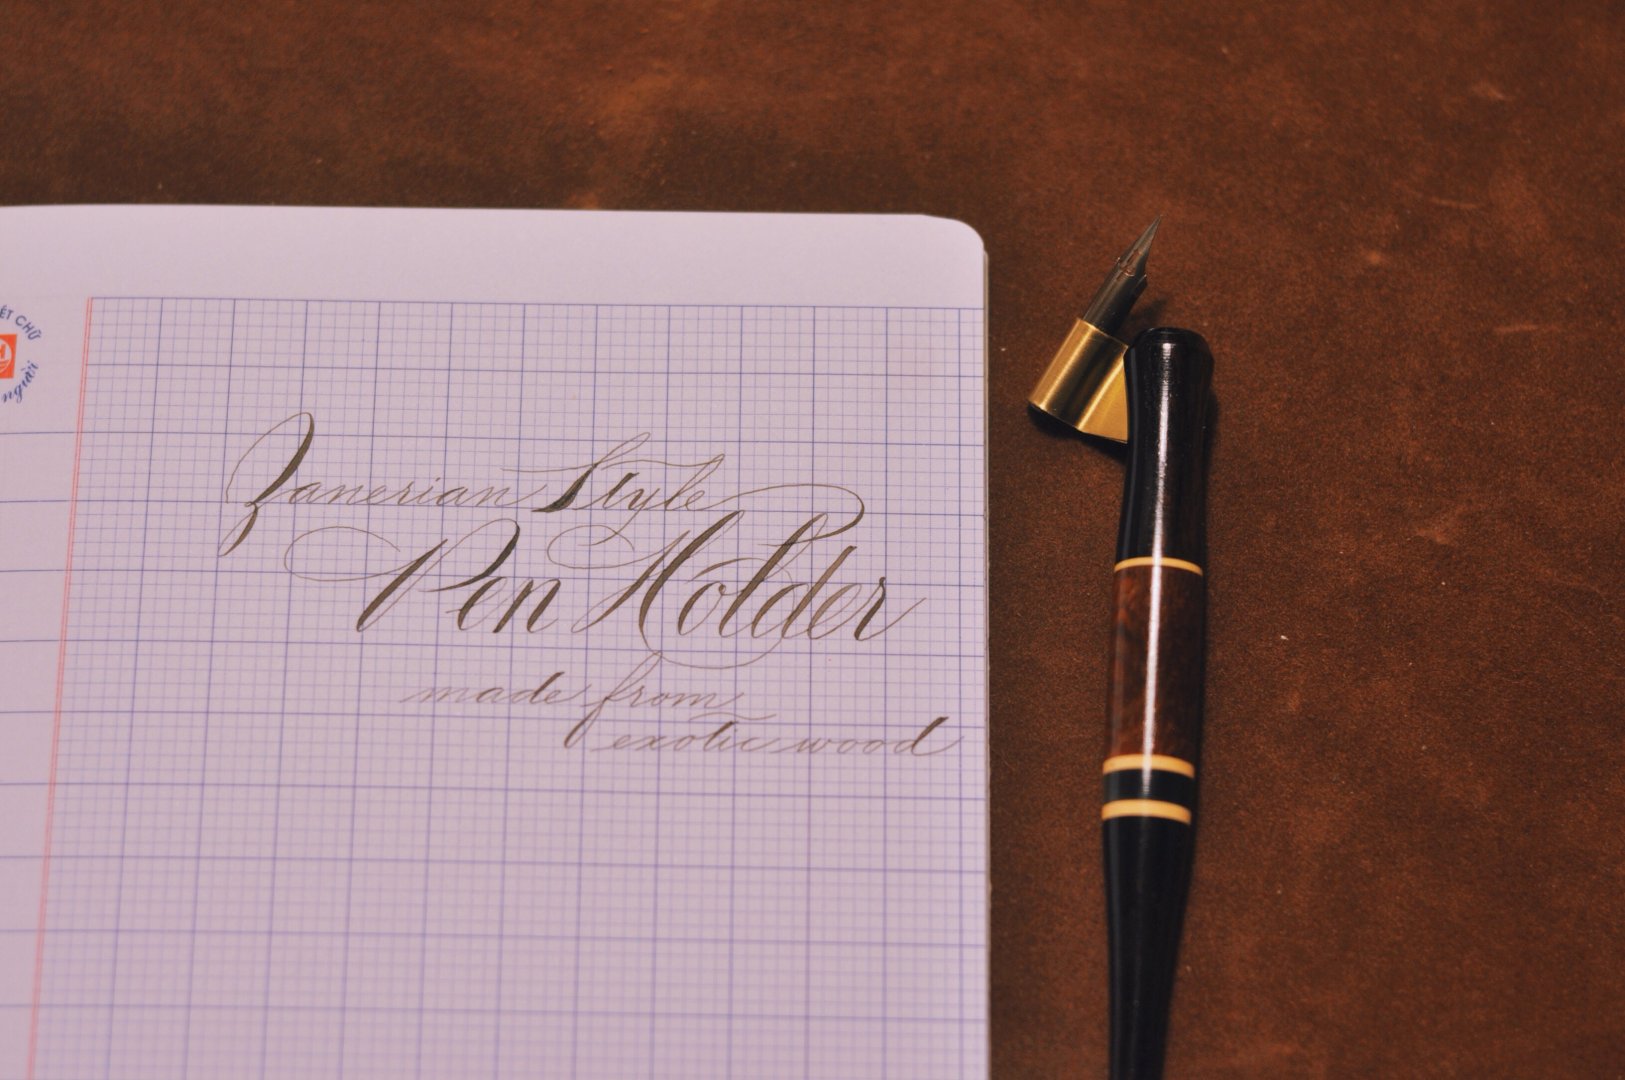 ÉT CHỮ
người
Zanerian Style
Pen Holder
made from
exotic wood